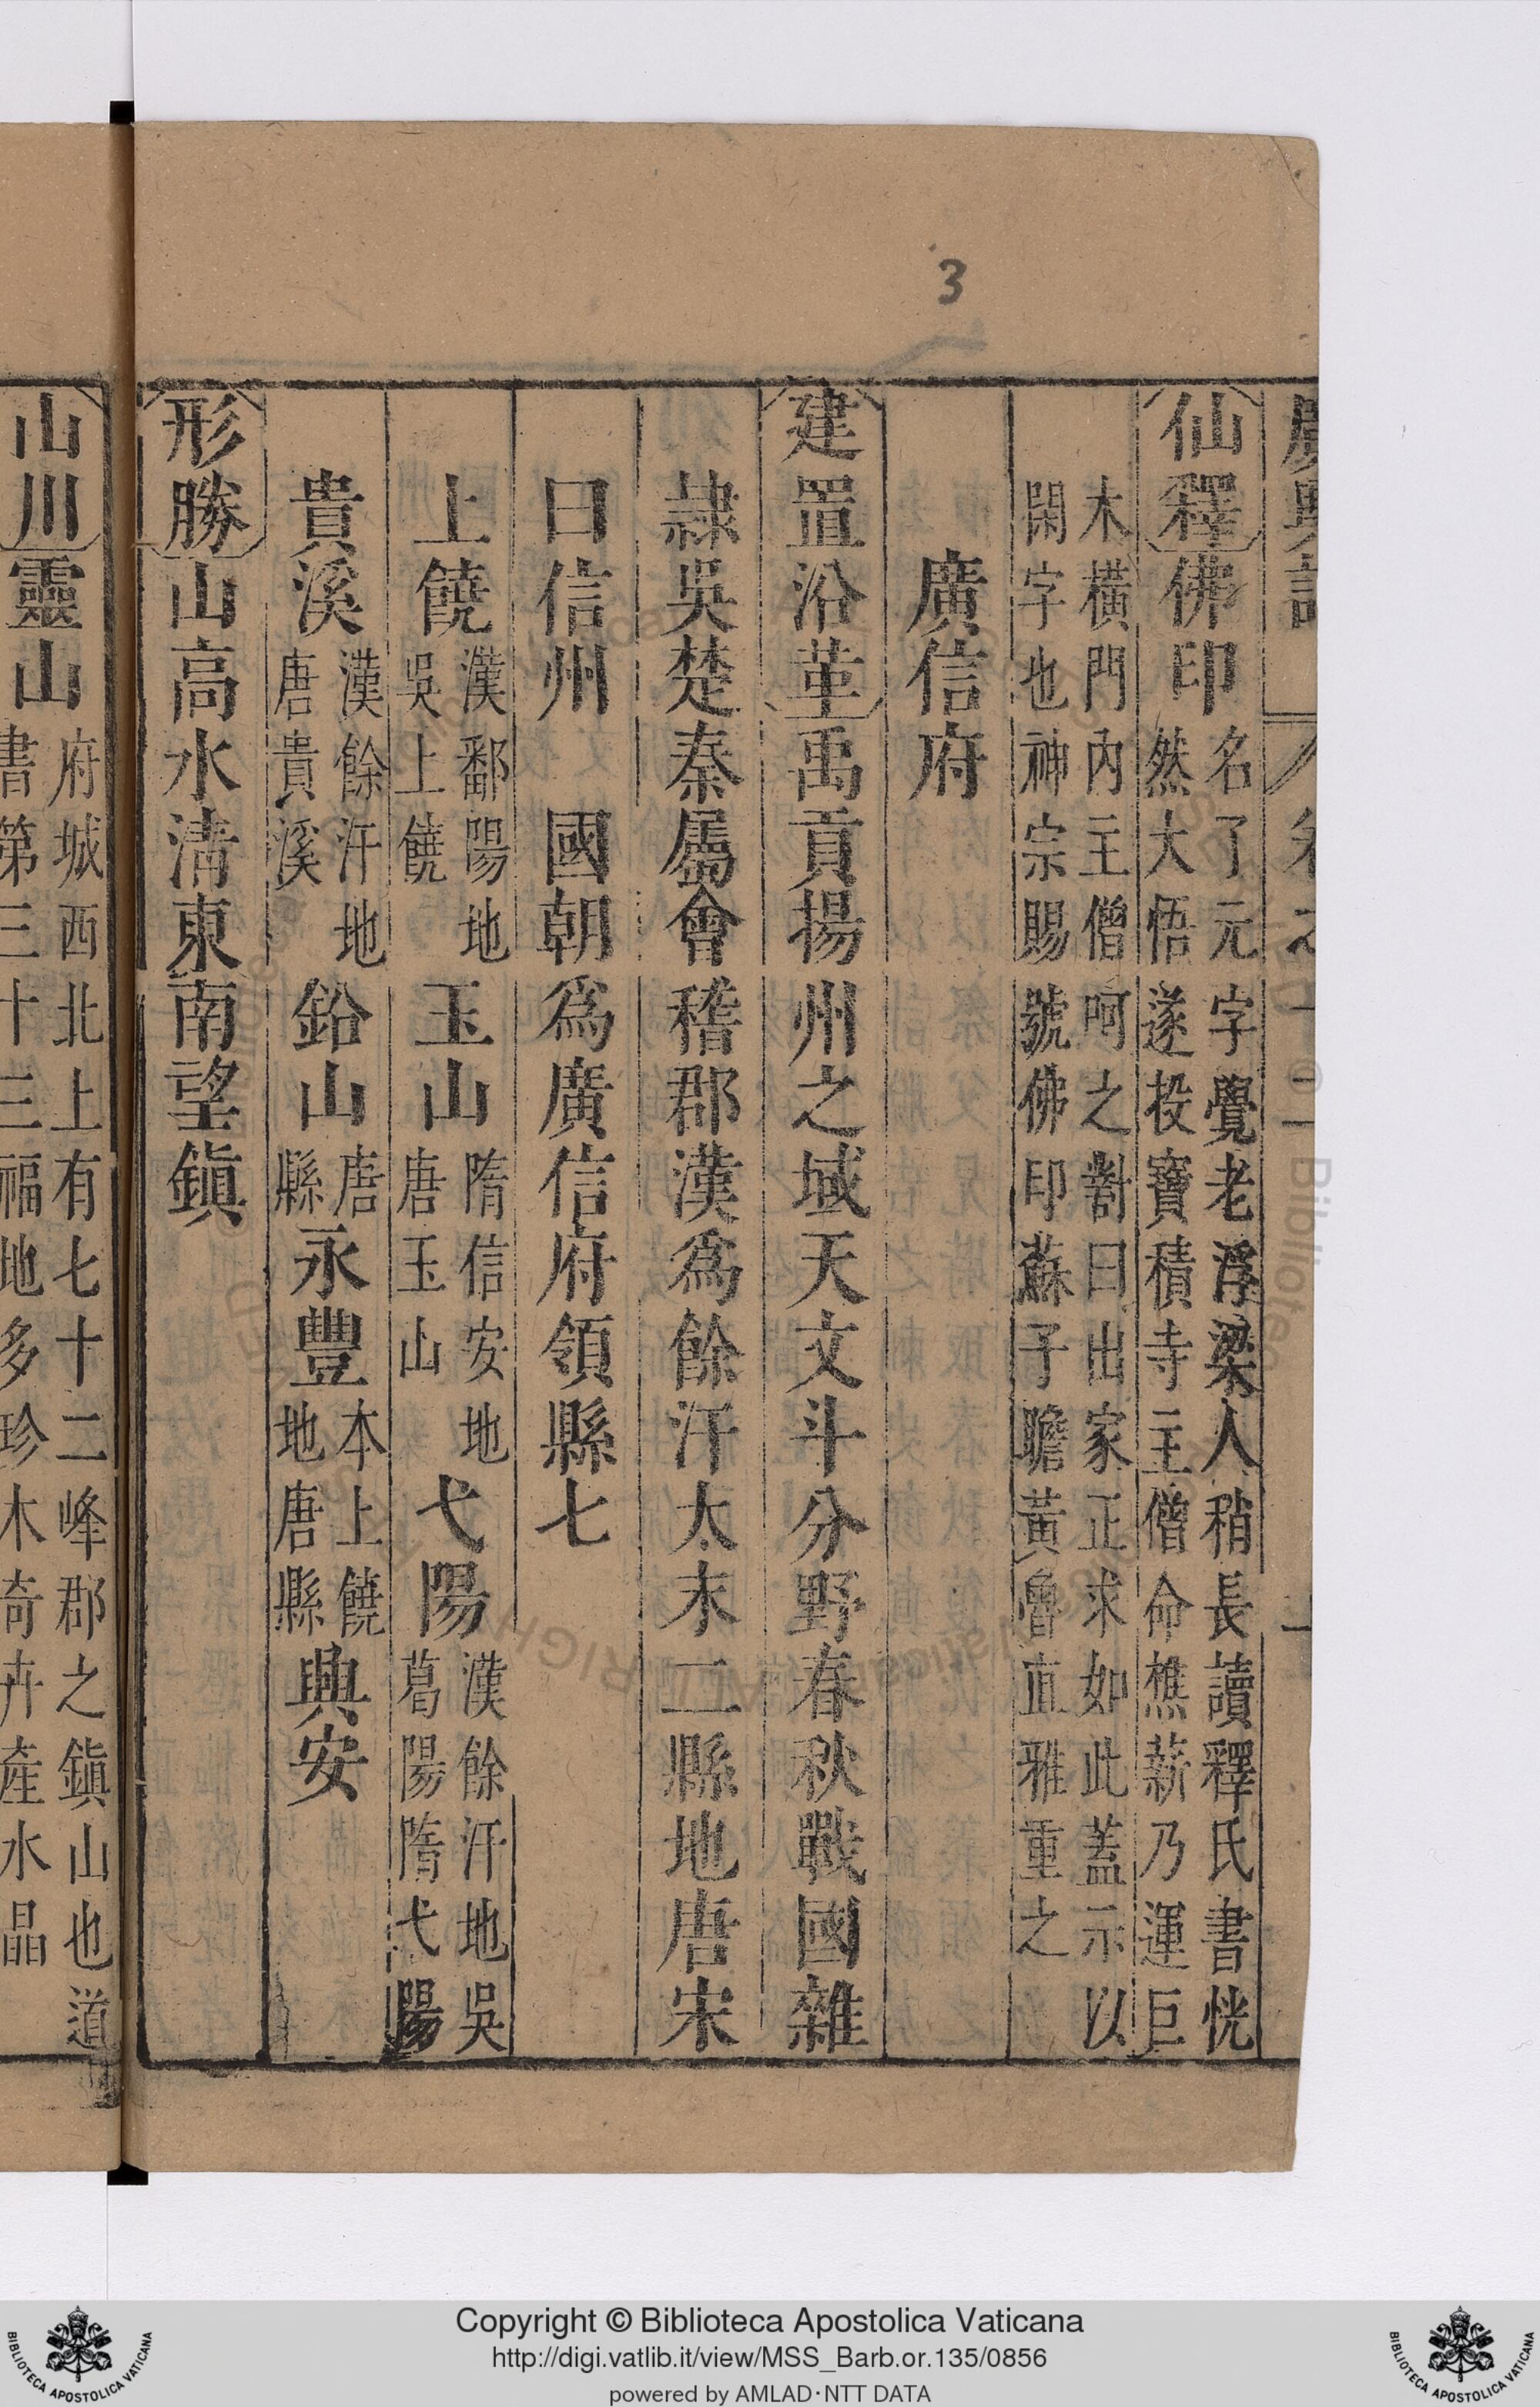 3
廣輿記　卷之十二　一
仙釋佛印名了元字覺老浮梁人稍長讀釋氏書恍
然大悟遂投寶積寺主僧命樵薪乃運巨
木橫門内主僧呵之對曰出家正求如此蓋示以
閑字也神宗賜號佛印蘇子瞻黃魯直雅重之
廣信府
建置沿革禹貢揚州之域天文斗分野春秋戰國雜
隷吳楚秦屬會稽郡漢爲餘汗太末二縣地唐宋
曰信州　國朝爲廣信府領縣七
上饒漢鄱陽地吳上饒玉山隋信安地唐玉山弋陽漢餘汗地吳葛陽隋弋陽
貴溪漢餘汗地唐貴溪鉛山唐縣永豐本上饒地唐縣興安
形勝山高水清東南望鎭
山川靈山府城西北上有七十二峰郡之鎭山也道
書第三十三福地多珍木奇卉產水晶
Copyright © Biblioteca Apostolica Vaticana
http://digi.vatlib.it/view/MSS_Barb.or.135/0856
powered by AMLAD·NTT DATA
BIBLIOTECA APOSTOLICA VATICANA
BIBLIOTECA APOSTOLICA VATICANA